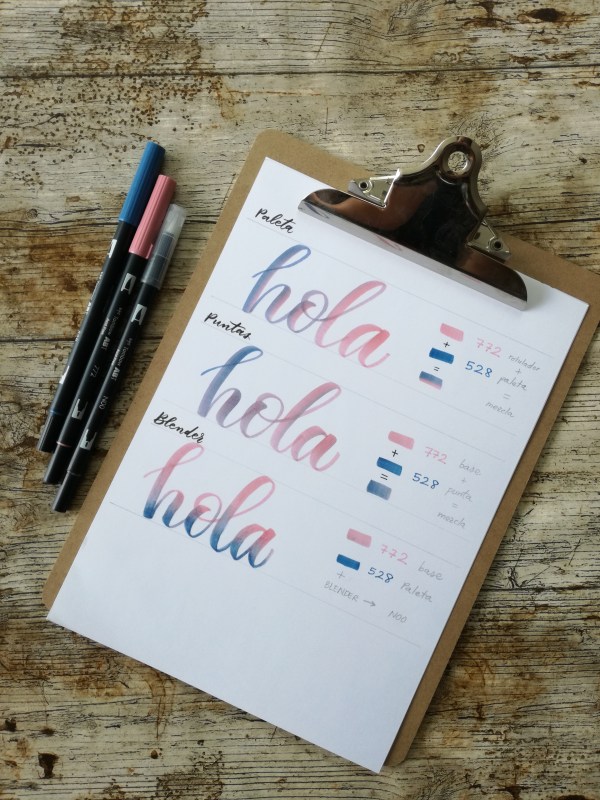 Paleta
hola
772 rotulador
+ +
528 paleta
= =
mezcla
Puntas
hola
772 base
+ +
528 punta
= =
mezcla
Blender
hola
772 base
528 Paleta
+
BLENDER → N00
772
N00